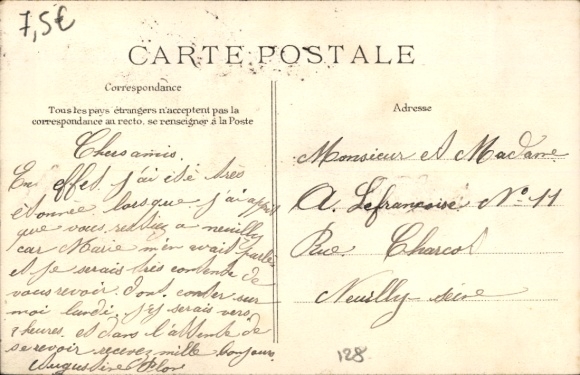 7,5€
CARTE POSTALE
Correspondance
Tous les pays étrangers n'acceptent pas la
correspondance au recto, se renseigner à la Poste
Adresse
Chers amis,
En effet j'ai été très
étonnée lorsque j'ai appris
que vous restiez a neuilly
car Marie m'en avait parlé
et je serais très contente de
vous revoir dont conter sur
moi lundi j'y serais vers
heures et dans l'attente de
se revoir recevez mille bonjours
Augustine Flore
Monsieur et Madame
A. Lefrancoise N° 11
Rue Charcot
Neuilly-seine
128